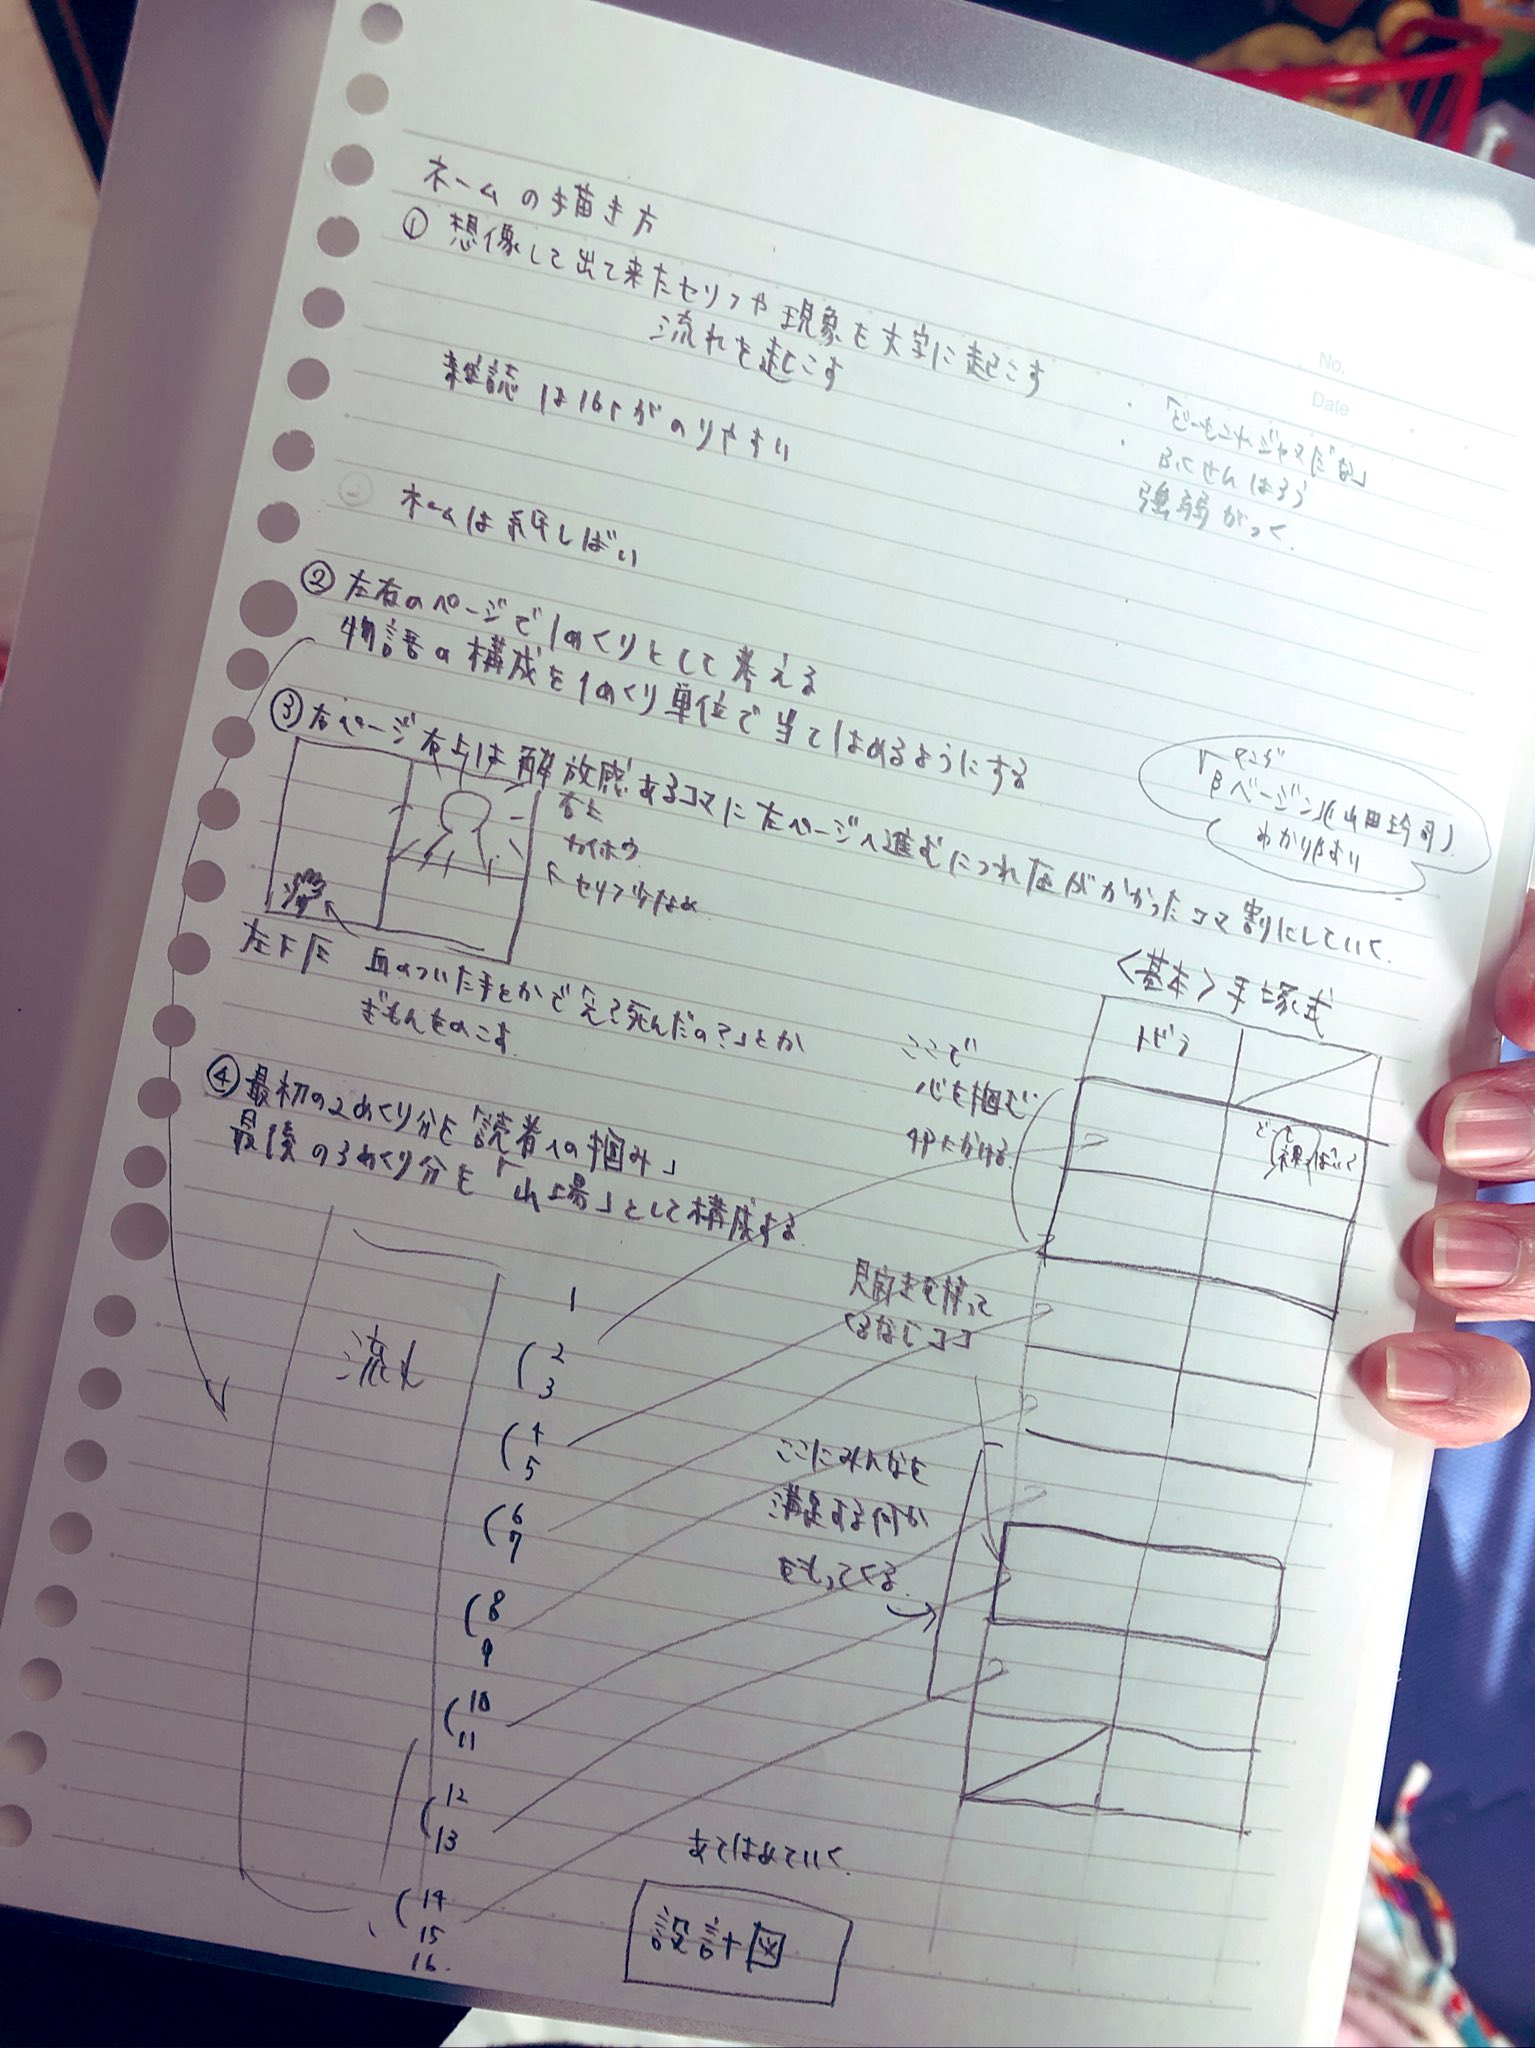 ネームの描き方
① 想像して出て来たセリフや現象を文字に起こす
流れを起こす
雑誌は16Pがのりやすい
No.
Date
「どーもこれジャマだな」
ふくせんはろう
強弱がつく
ネームは
② 左右のページで1めくりとして考える
物語の構成を1めくり単位で当てはめるようにする
③ 右ページ右上は解放感あるコマに左ページへ進むにつれ圧がかかったコマ割にしていく
右上
カイホウ
セリフ少なめ
マンガ
「βページン」(山田玲司)
わかりやすい
左下
血のついた手とかで「え?死んだの?」とか
ぎもんをのこす
④ 最初の2めくり分を「読者への掴み」
最後の3めくり分を「山場」として構成する
〈基本〉手塚式
トビラ
ここで
心を掴む
見開きを使って
くるならココ
ここにみんなを
満足する何か
をもってくる
流れ
1
2
3
4
5
6
7
8
9
10
11
12
13
14
15
16
あてはめていく
設計図